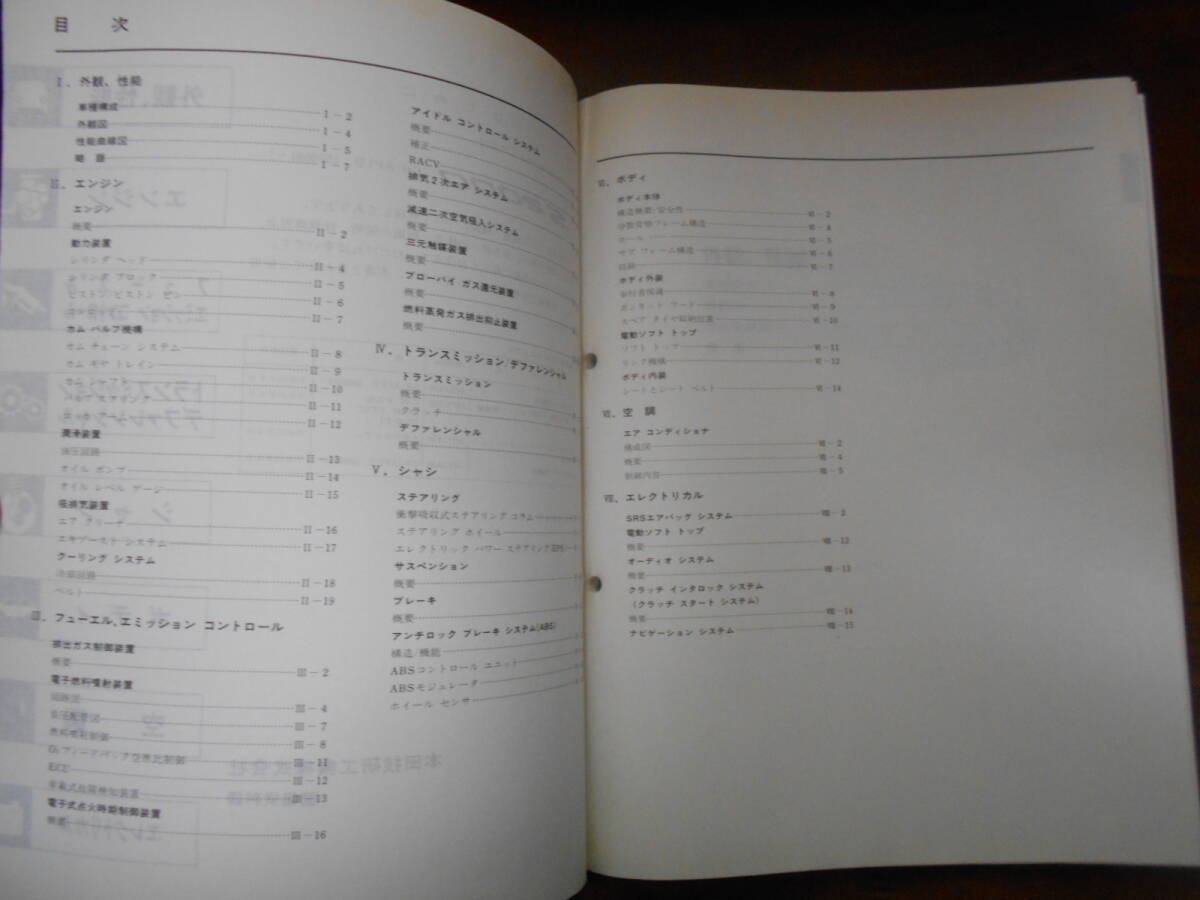 目 次
I. 外観、性能
車種構成 I-2
外観図 I-4
性能曲線図 I-5
略 語 I-7
II. エンジン
エンジン
概要 II-2
動力装置
シリンダ ヘッド II-4
シリンダ ブロック II-5
ピストン/ピストン ピン II-6
II-7
カム バルブ機構
カム チェーン システム II-8
カム ギヤ トレイン II-9
II-10
II-11
II-12
潤滑装置
油圧回路 II-13
オイル ポンプ II-14
オイル レベル ゲージ II-15
吸排気装置
エア クリーナ II-16
エキゾースト システム II-17
クーリング システム
冷却回路 II-18
ベルト II-19
III. フューエル、エミッション コントロール
排出ガス制御装置
概要 III-2
電子燃料噴射装置
回路図 III-4
負圧配管図 III-7
燃料噴射制御 III-8
O₂フィードバック空燃比制御 III-11
ECU III-12
車載式故障検知装置 III-13
電子式点火時期制御装置
概要 III-16
アイドル コントロール システム
概要
補正
RACV
排気2次エア システム
概要
減速二次空気吸入システム
概要
三元触媒装置
概要
ブローバイ ガス還元装置
概要
燃料蒸発ガス排出抑止装置
概要
IV. トランスミッション/デファレンシャル
トランスミッション
概要
クラッチ
デファレンシャル
概要
V. シャシ
ステアリング
衝撃吸収式ステアリング コラム
ステアリング ホイール
エレクトリック パワー ステアリング(EPS)
サスペンション
概要
ブレーキ
概要
アンチロック ブレーキ システム(ABS)
構造/機能
ABSコントロール ユニット
ABSモジュレータ
ホイール センサ
VI. ボディ
ボディ本体
構造概要/安全性 VI-2
VI-4
VI-5
サブ フレーム構造 VI-6
VI-7
ボディ外装
歩行者保護 VI-8
ボンネット フード VI-9
スペア タイヤ格納位置 VI-10
電動ソフト トップ
ソフト トップ VI-11
リンク機構 VI-12
ボディ内装
シートとシート ベルト VI-14
VII. 空 調
エア コンディショナ
構成図 VII-2
概要 VII-4
制御内容 VII-5
VIII. エレクトリカル
SRSエアバッグ システム VIII-2
電動ソフト トップ
概要 VIII-12
オーディオ システム
概要 VIII-13
クラッチ インタロック システム
(クラッチ スタート システム)
概要 VIII-14
ナビゲーション システム VIII-15